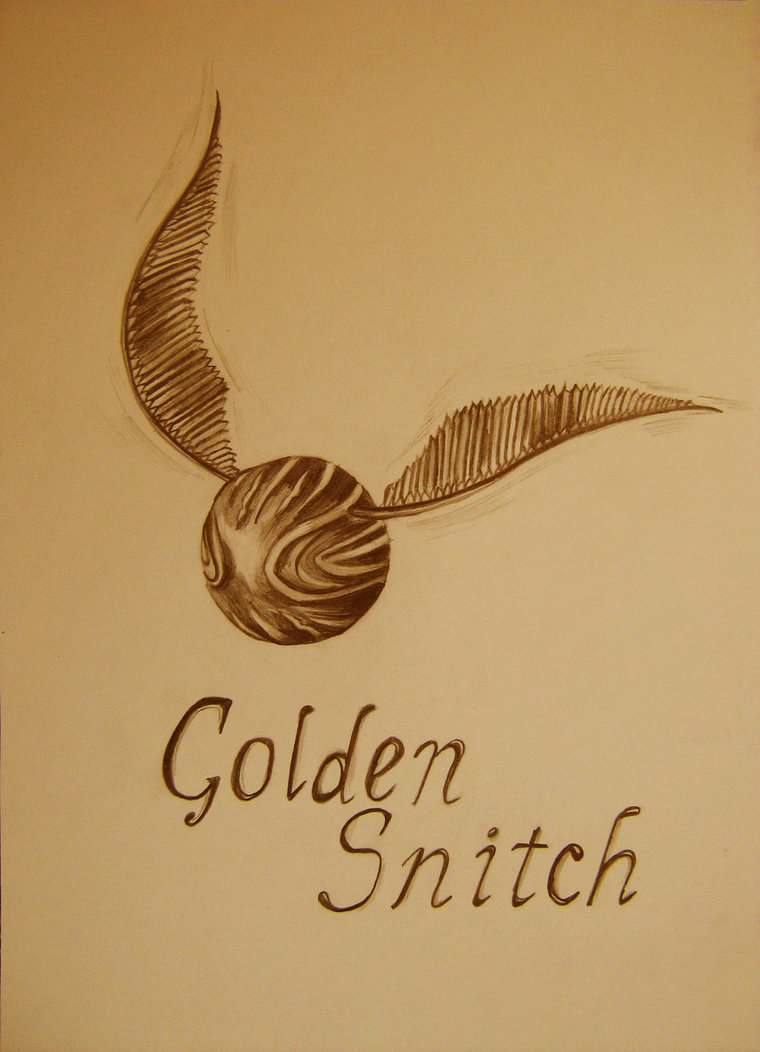 Golden
Snitch